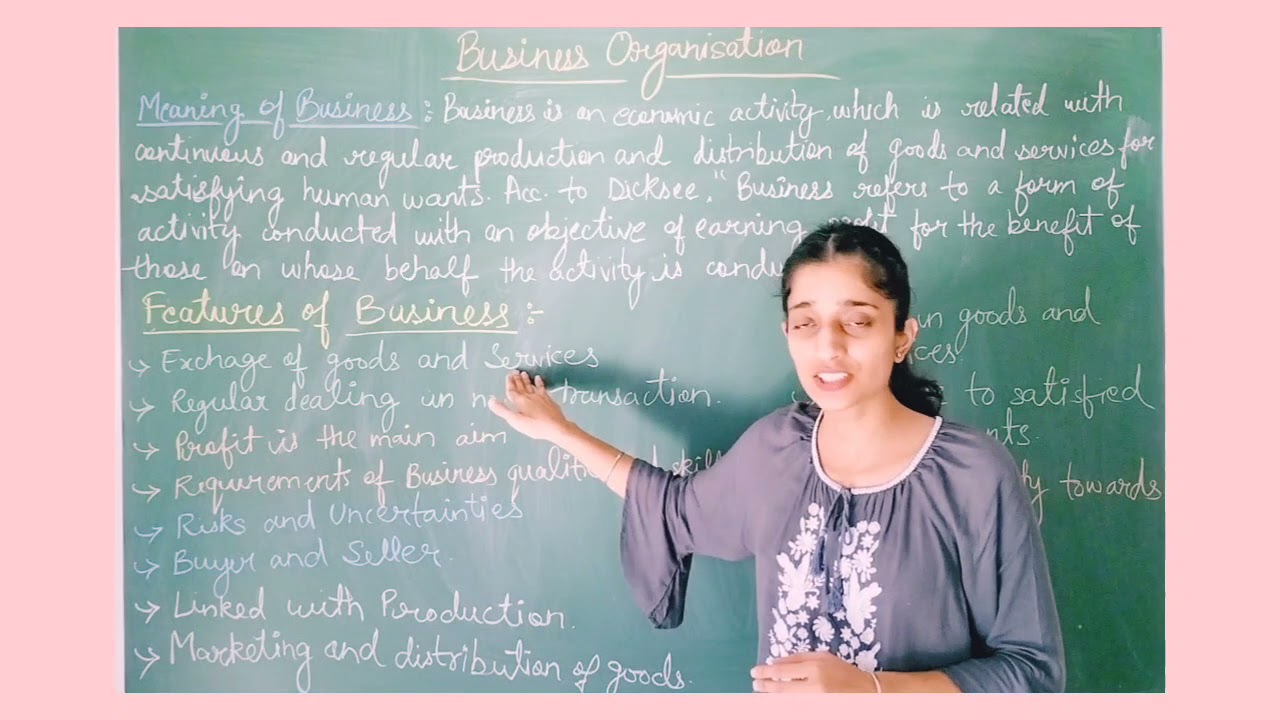 Business Organisation
Meaning of Business : Business is an economic activity, which is related with
continuous and regular production and distribution of goods and services for
satisfying human wants. Acc. to Dicksee, "Business refers to a form of
activity conducted with an objective of earning for the benefit of
those on whose behalf the activity is
Features of Business :-
→ Exchage of goods and Services
→ Regular dealing in transaction.
→ Profit is the main aim
→ Requirements of Business
→ Risks and Uncertainties
→ Buyer and Seller.
→ Linked with Production.
→ Marketing and distribution of goods.
goods and
to satisfied
towards